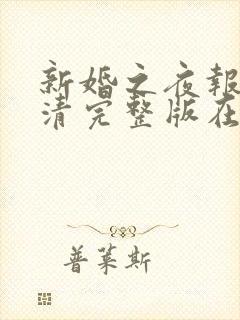 新婚之夜報
清完整版在
普莱斯